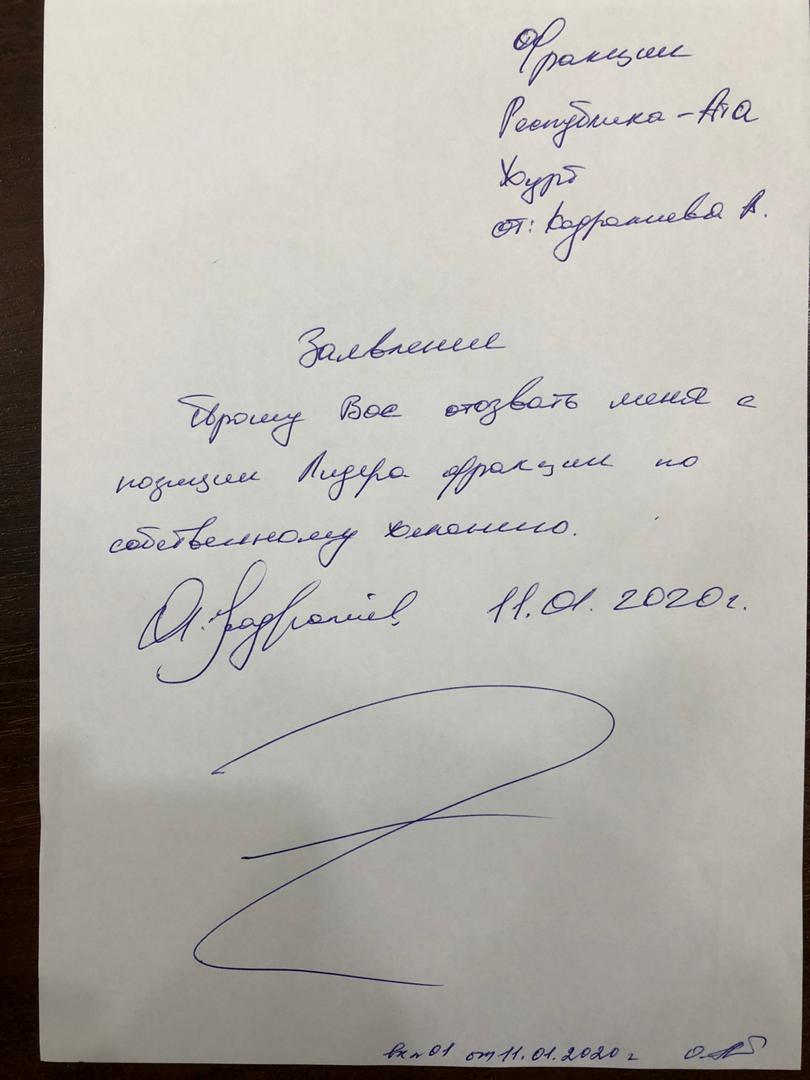 Фракции
Республика - Ата
Журт
от: Кадралиева А.
Заявление
Прошу Вас отозвать меня с
позиции Лидера фракции по
собственному желанию.
11.01.2020г.
вх № 01 от 11.01.2020 г